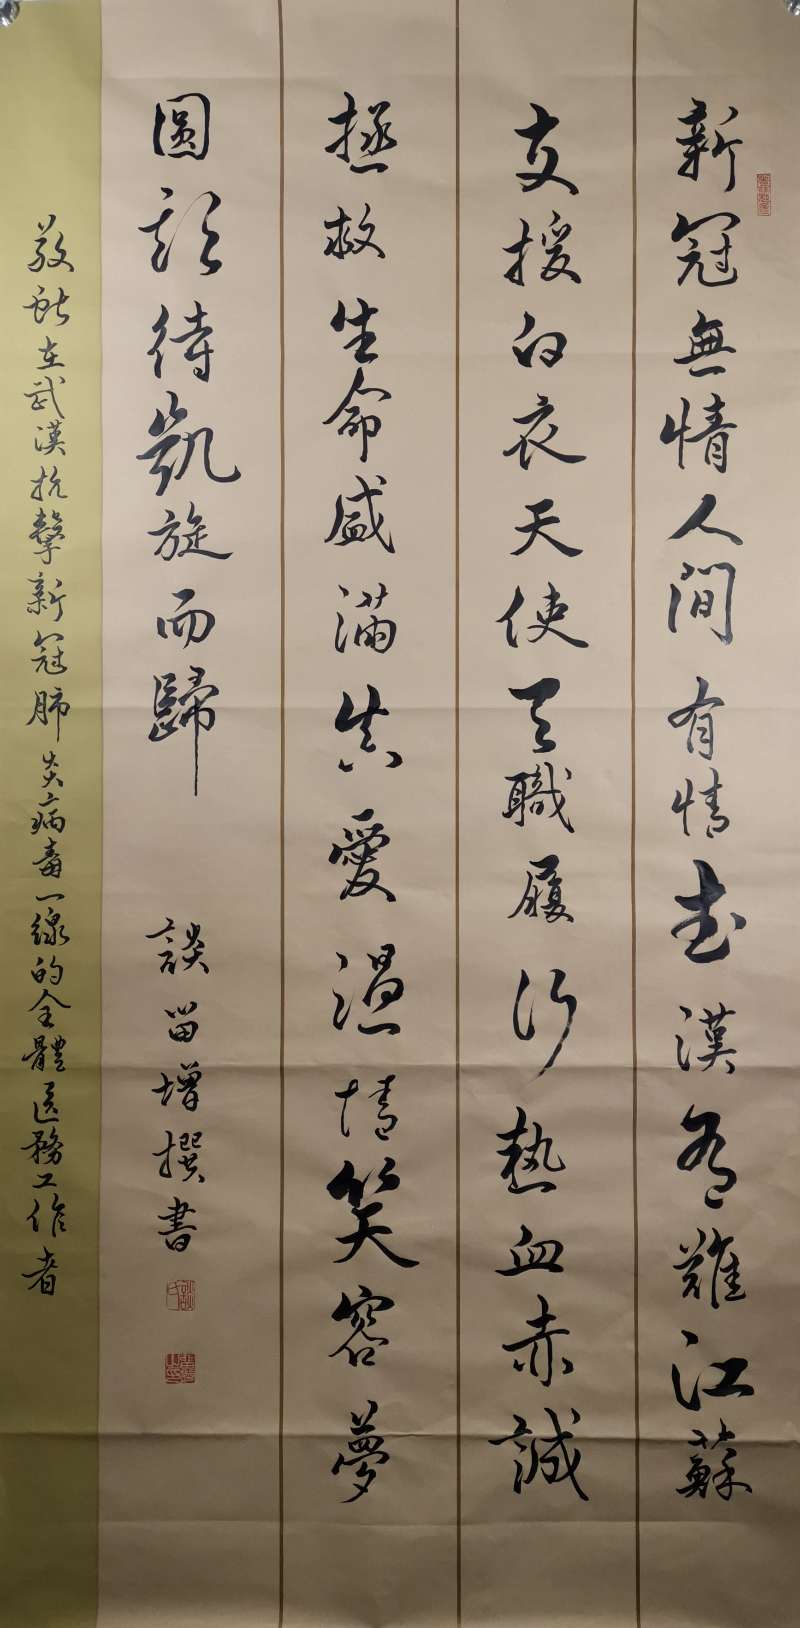 新冠無情人間有情武漢有難江蘇
支援白衣天使天職履行熱血赤誠
拯救生命盛滿真愛溫情笑容夢
圓歌待凱旋而歸
談留增撰書
敬獻在武漢抗擊新冠肺炎病毒一線的全體医務工作者